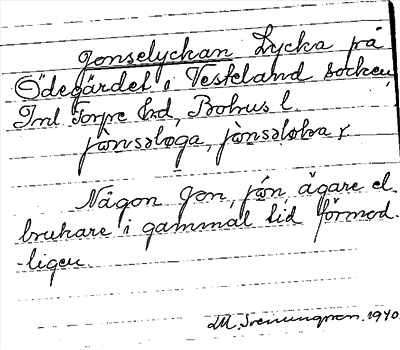 Jonselyckan Lycka på
Ödegärdet i Vesteland socken
Inl. Torpe hd, Bohus l.
Någon Jon, jón, ägare el.
brukare i gammal tid förmod-
ligen.
M. Svenungson. 1940.